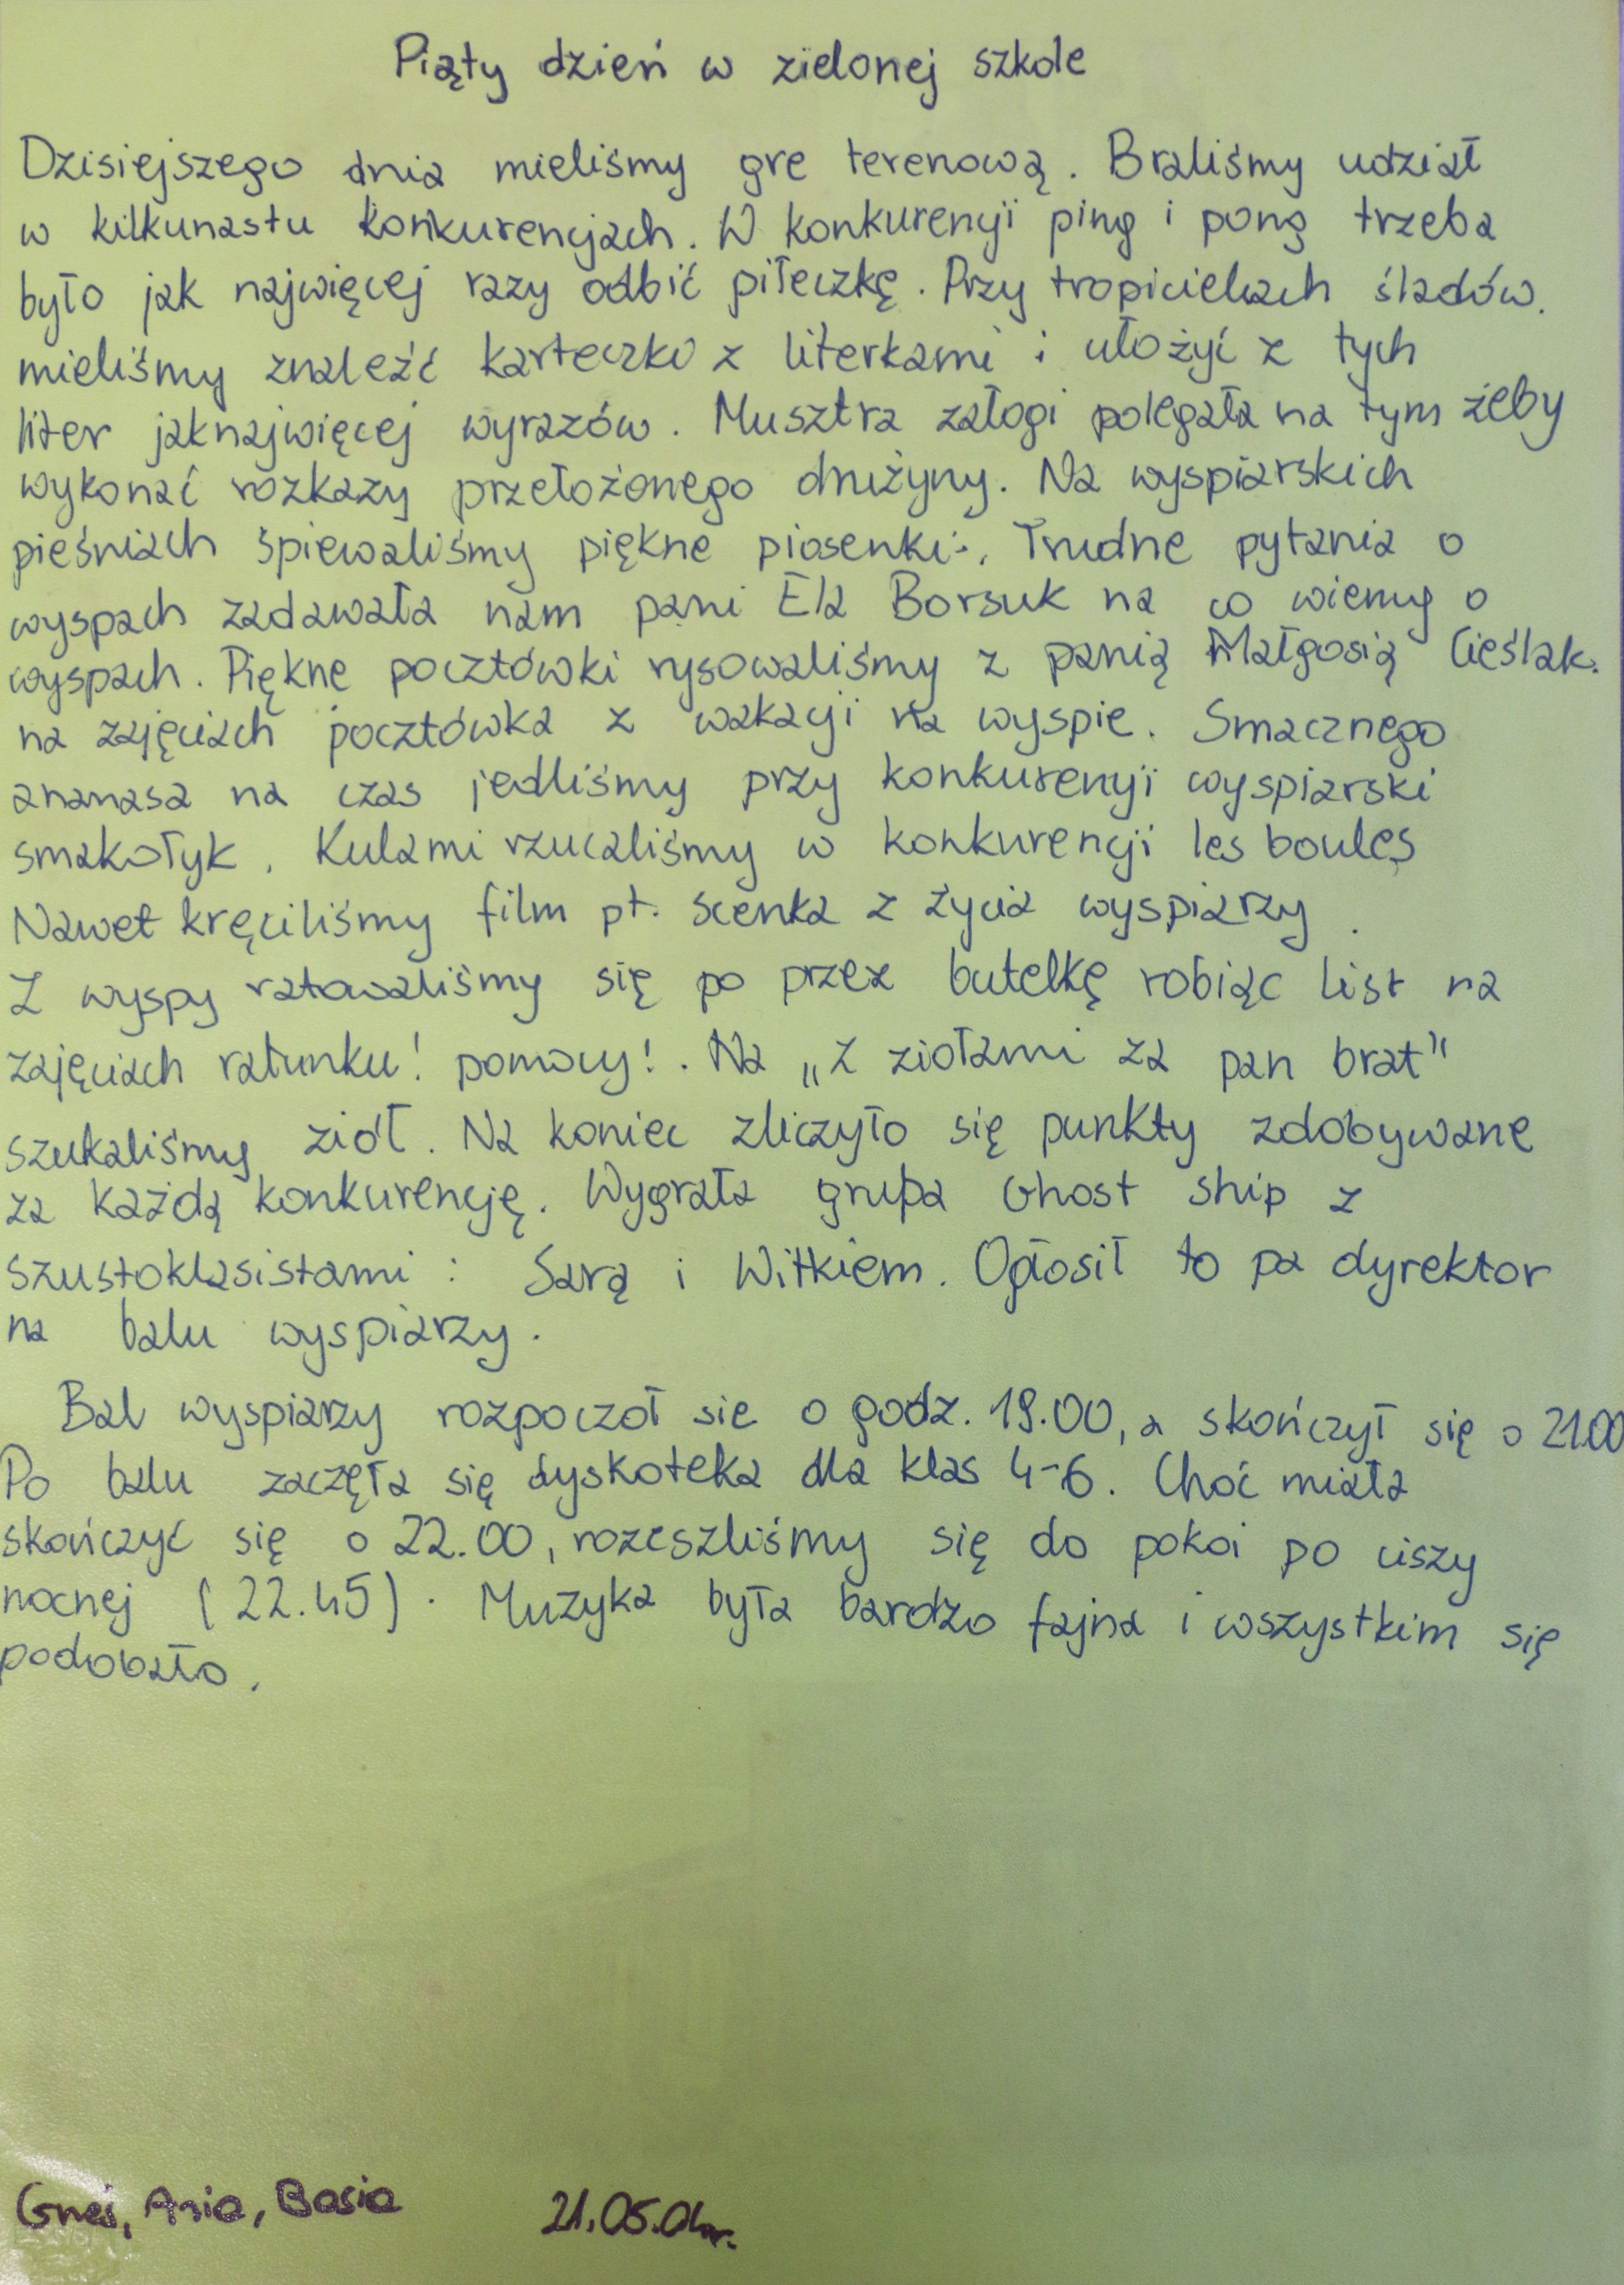 Piąty dzień w zielonej szkole
Dzisiejszego dnia mieliśmy gre terenową. Braliśmy udział
w kilkunastu konkurencjach. W konkurencji ping i pong trzeba
było jak najwięcej razy odbić piłeczkę. Przy tropicielach śladów.
mieliśmy znaleźć karteczki z literkami i ułożyć z tych
liter jaknajwięcej wyrazów. Musztra załogi polegała na tym żeby
wykonać rozkazy przełożonego drużyny. Na wyspiarskich
pieśniach śpiewaliśmy piękne piosenki. Trudne pytania o
wyspach zadawała nam pani Ela Borsuk na co wiemy o
wyspach. Piękne pocztówki rysowaliśmy z panią Małgosią Cieślak.
na zajęciach pocztówka z wakacji na wyspie. Smacznego
ananasa na czas jedliśmy przy konkurencji wyspiarski
smakołyk. Kulami rzucaliśmy w konkurencji les boules
Nawet kręciliśmy film pt. scenka z życia wyspiarzy.
Z wyspy ratowaliśmy się po przez butelkę robiąc list na
zajęciach ratunku! pomocy!. Na „Z ziołami za pan brat"
szukaliśmy ziół. Na koniec zliczyło się punkty zdobywane
za każdą konkurencję. Wygrała grupa Ghost ship z
szustoklasistami: Sarą i Witkiem. Ogłosił to pa dyrektor
na balu wyspiarzy.
Bal wyspiarzy rozpoczoł sie o godz. 19.00, a skończył się o 21.00
Po balu zaczęła się dyskoteka dla klas 4-6. Choć miała
skończyć się o 22.00, rozeszliśmy się do pokoi po ciszy
nocnej (22.45). Muzyka była bardzo fajna i wszystkim się
podobało.
Ania, Basia 21.05.04r.